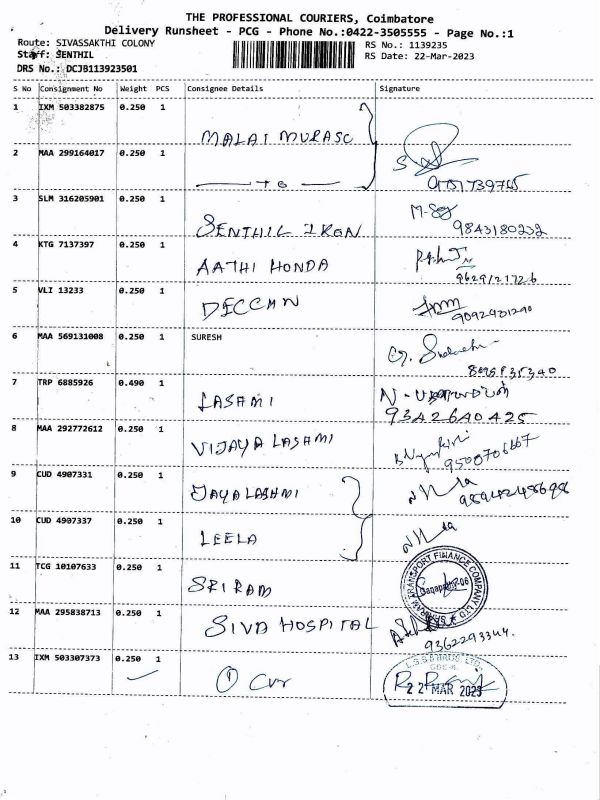 THE PROFESSIONAL COURIERS, Coimbatore
Delivery Runsheet - PCG - Phone No.:0422-3505555 - Page No.:1
Route: SIVASSAKTHI COLONY
RS No.: 1139235
Staff: SENTHIL
RS Date: 22-Mar-2023
DRS No.: DCJB113923501
S No Consignment No Weight PCS Consignee Details Signature
1 IXM 503382875 0.250 1
MALAI MURASU
2 MAA 299164017 0.250 1
3 SLM 316205901 0.250 1 SENTHIL IRON
9843180232
4 KTG 7137397 0.250 1 AATHI HONDA
9629121726
5 VLI 13233 0.250 1 DECCAN
6 MAA 569131008 0.250 1 SURESH
7 TRP 6885926 0.490 1 LASHMI
9342640425
8 MAA 292772612 0.250 1 VIJAYA LASHMI
9500706667
9 CUD 4907331 0.250 1 JAYALASHMI
10 CUD 4907337 0.250 1 LEELA
11 TCG 10107633 0.250 1 SRIRAM
TRANSPORT FINANCE COMPANY LTD
Ganapathy-06
12 MAA 295838713 0.250 1 SIVA HOSPITAL
9362293344.
13 IXM 503307373 0.250 1
22 MAR 2023